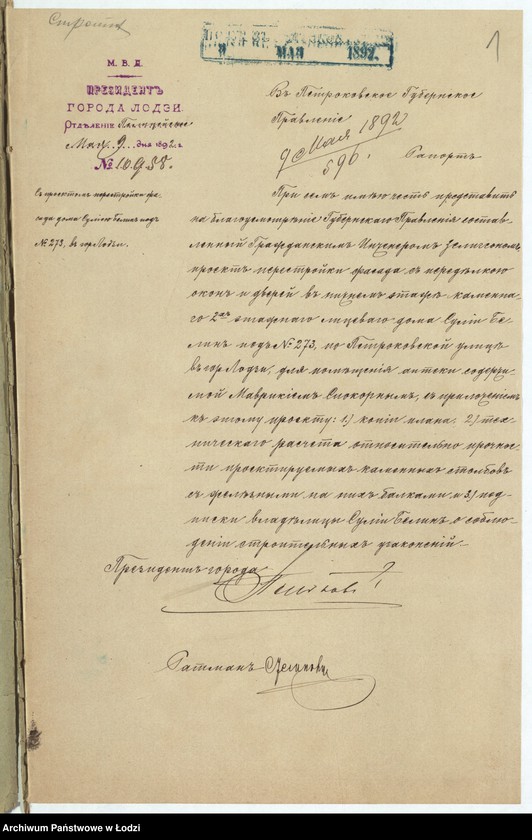 1
МАЙ 1892
М. В. Д.
ПРЕЗИДЕНТЪ
ГОРОДА ЛОДЗИ.
Отдѣленіе Полицейское
Мая 9 дня 1892 г.
№ 10958.
Съ проектомъ перестройки фа-
сада дома Суліи Белинъ подъ
№ 273, въ гор. Лодзи.
Въ Петроковское Губернское
Правленіе
9 Мая 1892
596.
Рапортъ
При семъ имѣю честь представить
на благоусмотрѣніе Губернскаго Правленія состав-
ленный Гражданскимъ Инженеромъ Зелигсономъ
проектъ перестройки фасада съ передѣлкою
оконъ и дверей въ нижнемъ этажѣ каменна-
го 2хъ этажнаго лицеваго дома Суліи Бе-
линъ подъ № 273, по Петроковской улицѣ
въ гор. Лодзи, для помѣщенія аптеки содержи-
мой Маврикіемъ Спокорнымъ, съ приложеніемъ
къ этому проекту: 1) копіи плана. 2) тех-
ническаго расчета относительно прочнос-
ти проектируемыхъ каменныхъ столбовъ
съ желѣзными на нихъ балками и 3) под-
писки владѣлицы Суліи Белинъ о соблю-
деніи строительныхъ узаконеній.
Президентъ города
Ратманъ
Archiwum Państwowe w Łodzi